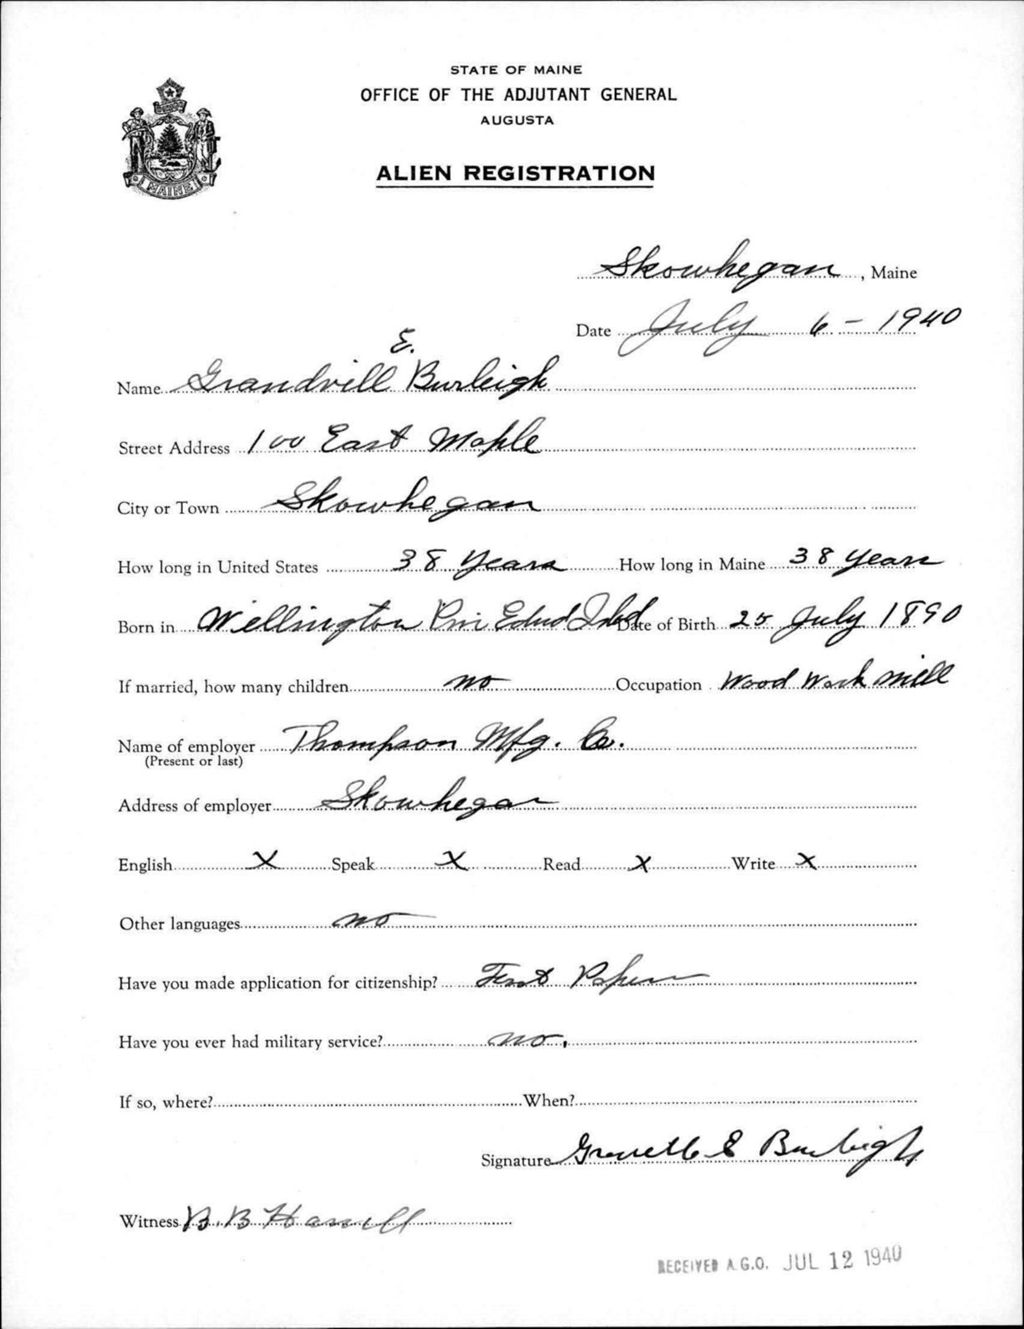 STATE OF MAINE
OFFICE OF THE ADJUTANT GENERAL
AUGUSTA
ALIEN REGISTRATION
MAINE
Skowhegan, Maine
Date July 6 - 1940
E.
Name Grandvill Burleigh
Street Address 100 East Maple
City or Town Skowhegan
How long in United States 38 Years How long in Maine 38 years
Born in Wellington Prin Edud Isld Date of Birth 25 July 1890
If married, how many children no Occupation Wood Work Mill
Name of employer Thompson Mfg. Co.
(Present or last)
Address of employer Skowhegan
English X Speak X Read X Write X
Other languages no
Have you made application for citizenship? First Paper
Have you ever had military service? no.
If so, where? When?
Signature E Burleigh
Witness B. B.
RECEIVED A.G.O. JUL 12 1940